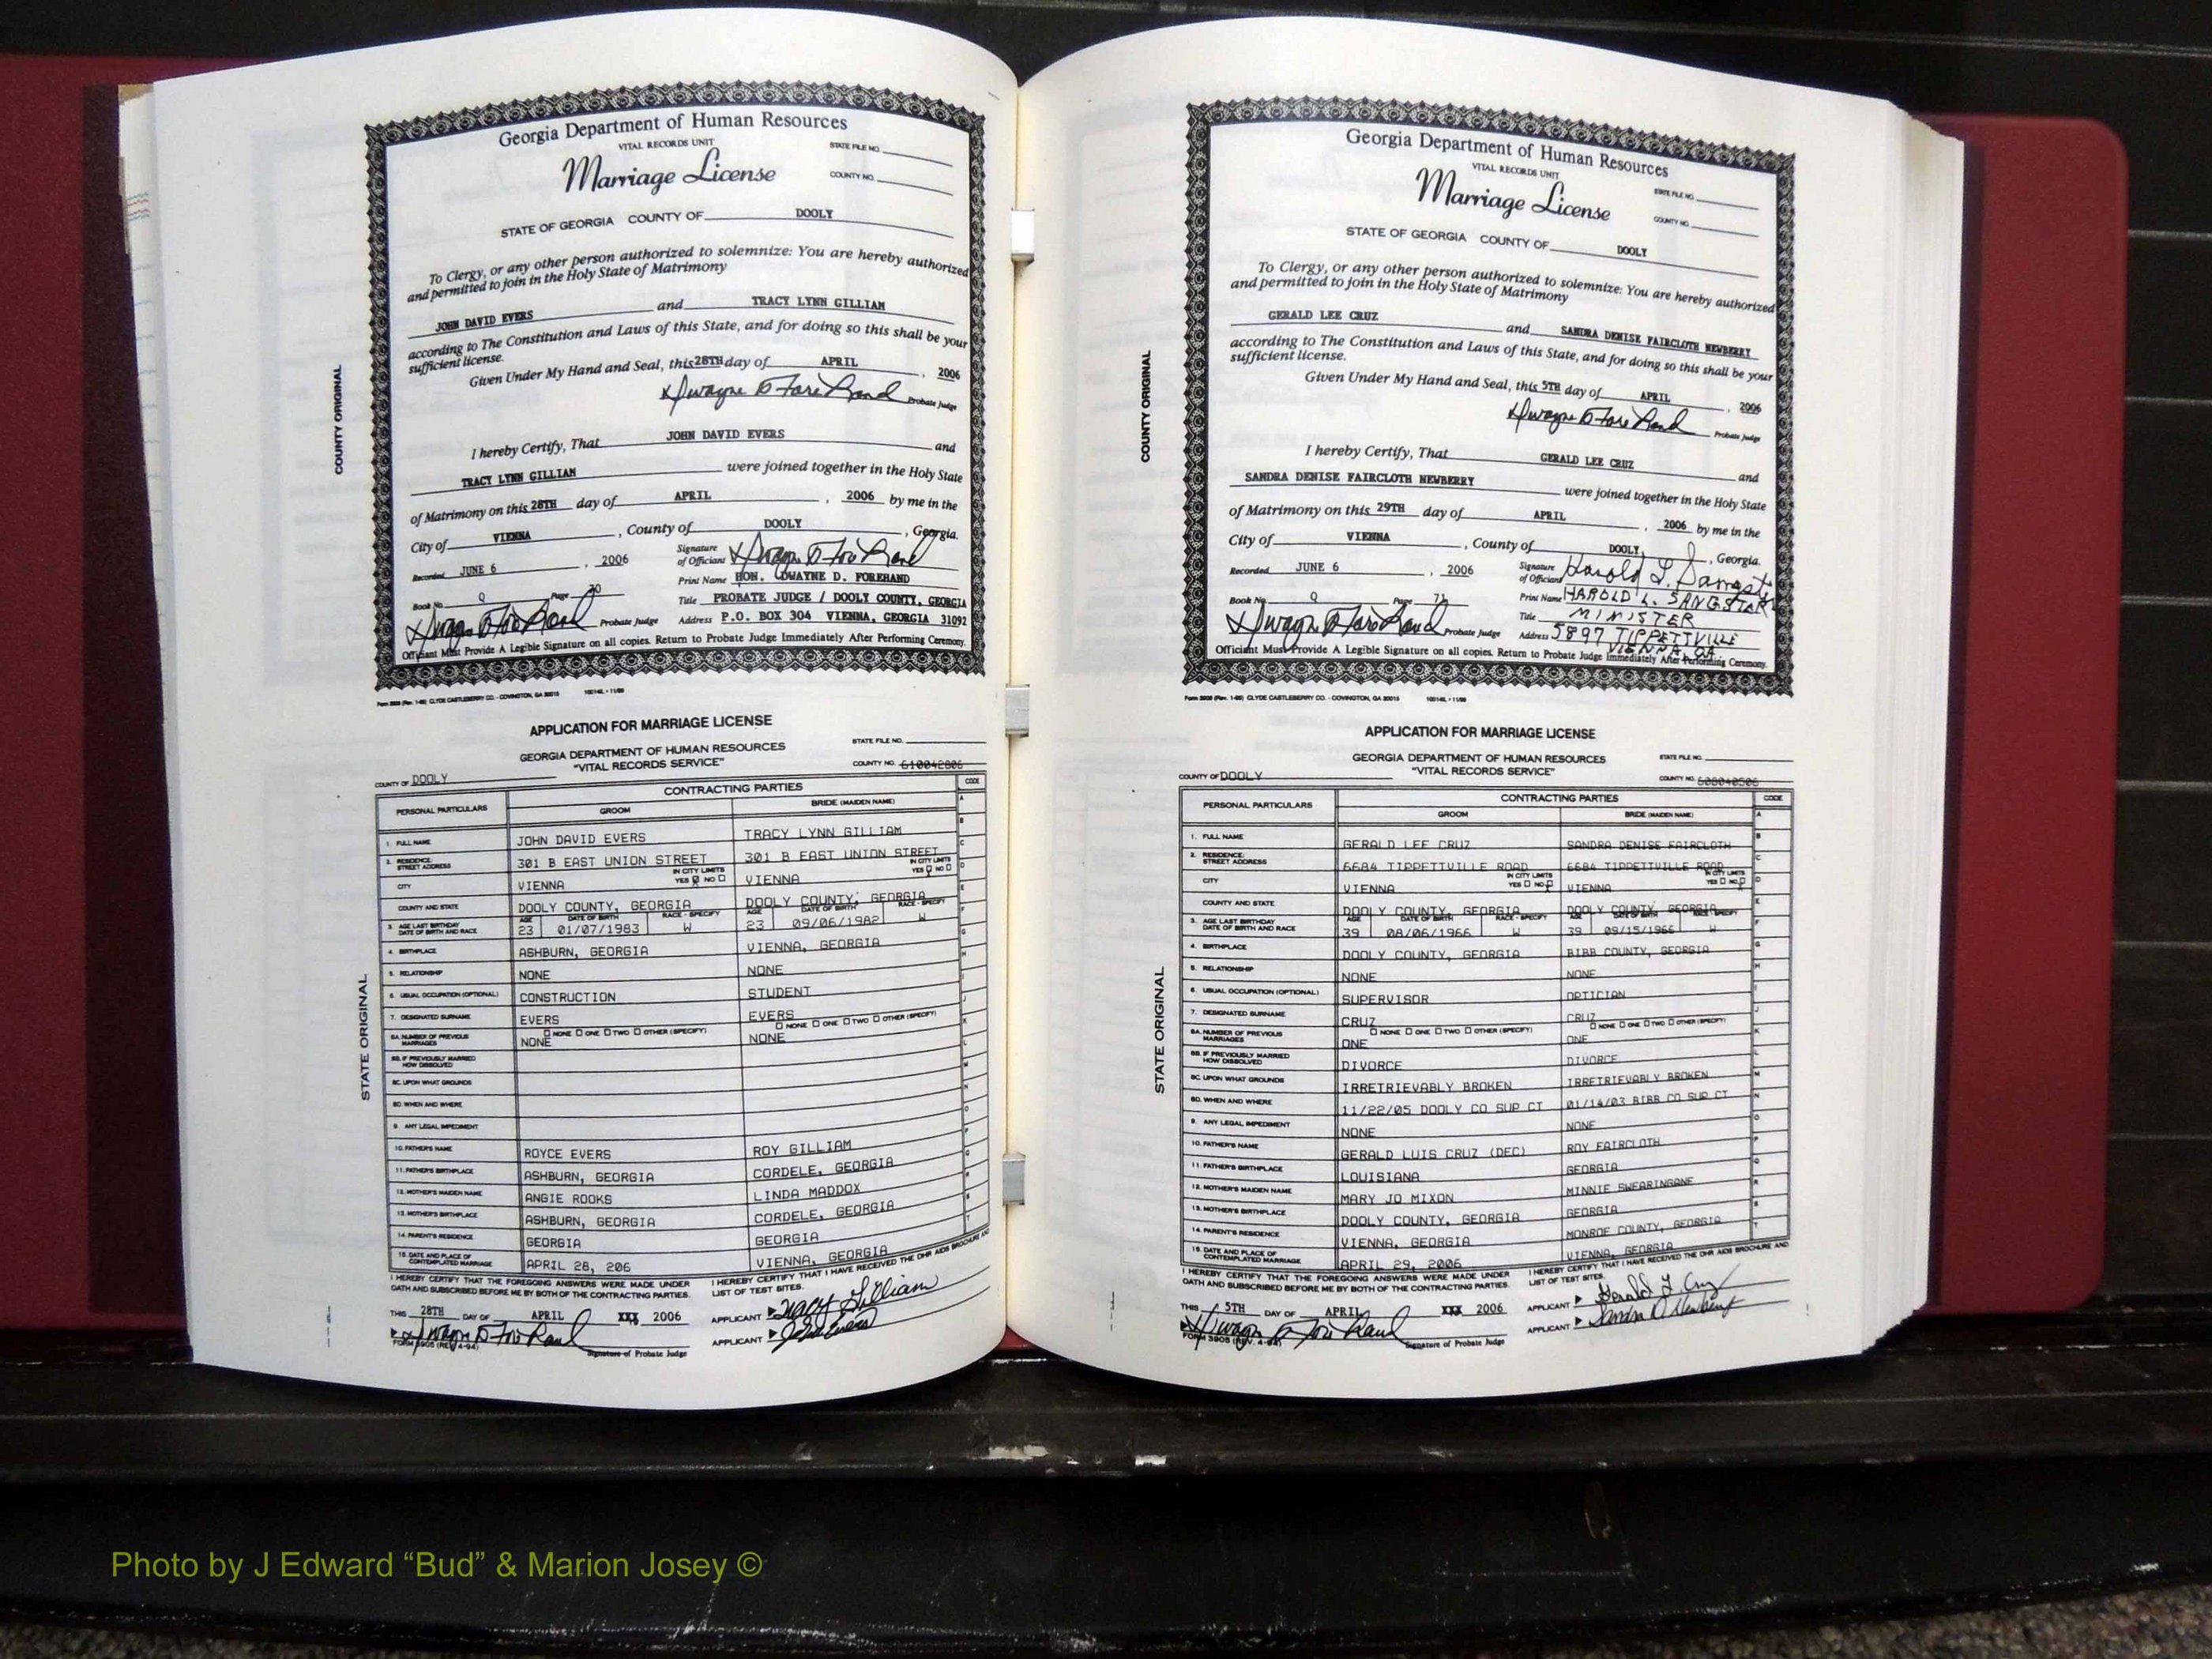 Georgia Department of Human Resources
VITAL RECORDS UNIT
STATE FILE NO.
Marriage License
COUNTY NO.
STATE OF GEORGIA COUNTY OF DOOLY
To Clergy, or any other person authorized to solemnize: You are hereby authorized
and permitted to join in the Holy State of Matrimony
JOHN DAVID EVERS and TRACY LYNN GILLIAM
according to The Constitution and Laws of this State, and for doing so this shall be your
sufficient license.
Given Under My Hand and Seal, this 28TH day of APRIL, 2006
Probate Judge
I hereby Certify, That JOHN DAVID EVERS and
TRACY LYNN GILLIAM were joined together in the Holy State
of Matrimony on this 28TH day of APRIL, 2006 by me in the
City of VIENNA, County of DOOLY, Georgia.
Recorded JUNE 6, 2006
Signature of Officiant
Print Name HON. DWAYNE D. FOREHAND
Book No. Q Page 70
Title PROBATE JUDGE / DOOLY COUNTY, GEORGIA
Probate Judge
Address P.O. BOX 304 VIENNA, GEORGIA 31092
Officiant Must Provide A Legible Signature on all copies. Return to Probate Judge Immediately After Performing Ceremony.
COUNTY ORIGINAL
APPLICATION FOR MARRIAGE LICENSE
GEORGIA DEPARTMENT OF HUMAN RESOURCES
"VITAL RECORDS SERVICE"
STATE FILE NO.
COUNTY NO. 610042806
COUNTY OF DOOLY
PERSONAL PARTICULARS CONTRACTING PARTIES CODE
GROOM BRIDE (MAIDEN NAME)
1. FULL NAME JOHN DAVID EVERS TRACY LYNN GILLIAM
2. RESIDENCE: STREET ADDRESS 301 B EAST UNION STREET 301 B EAST UNION STREET
CITY VIENNA IN CITY LIMITS YES NO VIENNA IN CITY LIMITS YES NO
COUNTY AND STATE DOOLY COUNTY, GEORGIA DOOLY COUNTY, GEORGIA
3. AGE LAST BIRTHDAY DATE OF BIRTH AND RACE AGE 23 DATE OF BIRTH 01/07/1983 RACE - SPECIFY W AGE 23 DATE OF BIRTH 09/06/1982 RACE - SPECIFY W
4. BIRTHPLACE ASHBURN, GEORGIA VIENNA, GEORGIA
5. RELATIONSHIP NONE NONE
6. USUAL OCCUPATION (OPTIONAL) CONSTRUCTION STUDENT
7. DESIGNATED SURNAME EVERS EVERS
8A. NUMBER OF PREVIOUS MARRIAGES NONE ONE TWO OTHER (SPECIFY) NONE NONE ONE TWO OTHER (SPECIFY) NONE
8B. IF PREVIOUSLY MARRIED HOW DISSOLVED
8C. UPON WHAT GROUNDS
8D. WHEN AND WHERE
9. ANY LEGAL IMPEDIMENT
10. FATHER'S NAME ROYCE EVERS ROY GILLIAM
11. FATHER'S BIRTHPLACE ASHBURN, GEORGIA CORDELE, GEORGIA
12. MOTHER'S MAIDEN NAME ANGIE ROOKS LINDA MADDOX
13. MOTHER'S BIRTHPLACE ASHBURN, GEORGIA CORDELE, GEORGIA
14. PARENT'S RESIDENCE GEORGIA GEORGIA
15. DATE AND PLACE OF CONTEMPLATED MARRIAGE APRIL 28, 206 VIENNA, GEORGIA
I HEREBY CERTIFY THAT THE FOREGOING ANSWERS WERE MADE UNDER
OATH AND SUBSCRIBED BEFORE ME BY BOTH OF THE CONTRACTING PARTIES.
I HEREBY CERTIFY THAT I HAVE RECEIVED THE DHR AIDS BROCHURE AND
LIST OF TEST SITES.
THIS 28TH DAY OF APRIL XXX 2006
APPLICANT Tracy Gilliam
APPLICANT John Evers
FORM 3905 (REV. 4-94)
Signature of Probate Judge
STATE ORIGINAL
Georgia Department of Human Resources
VITAL RECORDS UNIT
STATE FILE NO.
Marriage License
COUNTY NO.
STATE OF GEORGIA COUNTY OF DOOLY
To Clergy, or any other person authorized to solemnize: You are hereby authorized
and permitted to join in the Holy State of Matrimony
GERALD LEE CRUZ and SANDRA DENISE FAIRCLOTH NEWBERRY
according to The Constitution and Laws of this State, and for doing so this shall be your
sufficient license.
Given Under My Hand and Seal, this 5TH day of APRIL, 2006
Probate Judge
I hereby Certify, That GERALD LEE CRUZ and
SANDRA DENISE FAIRCLOTH NEWBERRY were joined together in the Holy State
of Matrimony on this 29TH day of APRIL, 2006 by me in the
City of VIENNA, County of DOOLY, Georgia.
Recorded JUNE 6, 2006
Signature of Officiant Harold L. Sangster
Print Name HAROLD L. SANGSTER
Book No. Q Page 71
Title MINISTER
Probate Judge
Address 5897 TIPPETTVILLE
VIENNA, GA
Officiant Must Provide A Legible Signature on all copies. Return to Probate Judge Immediately After Performing Ceremony.
COUNTY ORIGINAL
APPLICATION FOR MARRIAGE LICENSE
GEORGIA DEPARTMENT OF HUMAN RESOURCES
"VITAL RECORDS SERVICE"
STATE FILE NO.
COUNTY NO. 608040506
COUNTY OF DOOLY
PERSONAL PARTICULARS CONTRACTING PARTIES CODE
GROOM BRIDE (MAIDEN NAME)
1. FULL NAME GERALD LEE CRUZ SANDRA DENISE FAIRCLOTH
2. RESIDENCE: STREET ADDRESS 6684 TIPPETTVILLE ROAD 6684 TIPPETTVILLE ROAD
CITY VIENNA IN CITY LIMITS YES NO VIENNA IN CITY LIMITS YES NO
COUNTY AND STATE DOOLY COUNTY, GEORGIA DOOLY COUNTY, GEORGIA
3. AGE LAST BIRTHDAY DATE OF BIRTH AND RACE AGE 39 DATE OF BIRTH 08/06/1966 RACE - SPECIFY W AGE 39 DATE OF BIRTH 09/15/1966 RACE - SPECIFY W
4. BIRTHPLACE DOOLY COUNTY, GEORGIA BIBB COUNTY, GEORGIA
5. RELATIONSHIP NONE NONE
6. USUAL OCCUPATION (OPTIONAL) SUPERVISOR OPTICIAN
7. DESIGNATED SURNAME CRUZ CRUZ
8A. NUMBER OF PREVIOUS MARRIAGES NONE ONE TWO OTHER (SPECIFY) ONE NONE ONE TWO OTHER (SPECIFY) ONE
8B. IF PREVIOUSLY MARRIED HOW DISSOLVED DIVORCE DIVORCE
8C. UPON WHAT GROUNDS IRRETRIEVABLY BROKEN IRRETRIEVABLY BROKEN
8D. WHEN AND WHERE 11/22/05 DOOLY CO SUP CT 01/14/03 BIBB CO SUP CT
9. ANY LEGAL IMPEDIMENT NONE NONE
10. FATHER'S NAME GERALD LUIS CRUZ (DEC) ROY FAIRCLOTH
11. FATHER'S BIRTHPLACE LOUISIANA GEORGIA
12. MOTHER'S MAIDEN NAME MARY JO MIXON MINNIE SWEARINGANE
13. MOTHER'S BIRTHPLACE DOOLY COUNTY, GEORGIA GEORGIA
14. PARENT'S RESIDENCE VIENNA, GEORGIA MONROE COUNTY, GEORGIA
15. DATE AND PLACE OF CONTEMPLATED MARRIAGE APRIL 29, 2006 VIENNA, GEORGIA
I HEREBY CERTIFY THAT THE FOREGOING ANSWERS WERE MADE UNDER
OATH AND SUBSCRIBED BEFORE ME BY BOTH OF THE CONTRACTING PARTIES.
I HEREBY CERTIFY THAT I HAVE RECEIVED THE DHR AIDS BROCHURE AND
LIST OF TEST SITES.
THIS 5TH DAY OF APRIL XXX 2006
APPLICANT Gerald L Cruz
APPLICANT Sandra D Newberry
FORM 3905 (REV. 4-94)
Signature of Probate Judge
STATE ORIGINAL
Photo by J Edward “Bud” & Marion Josey ©